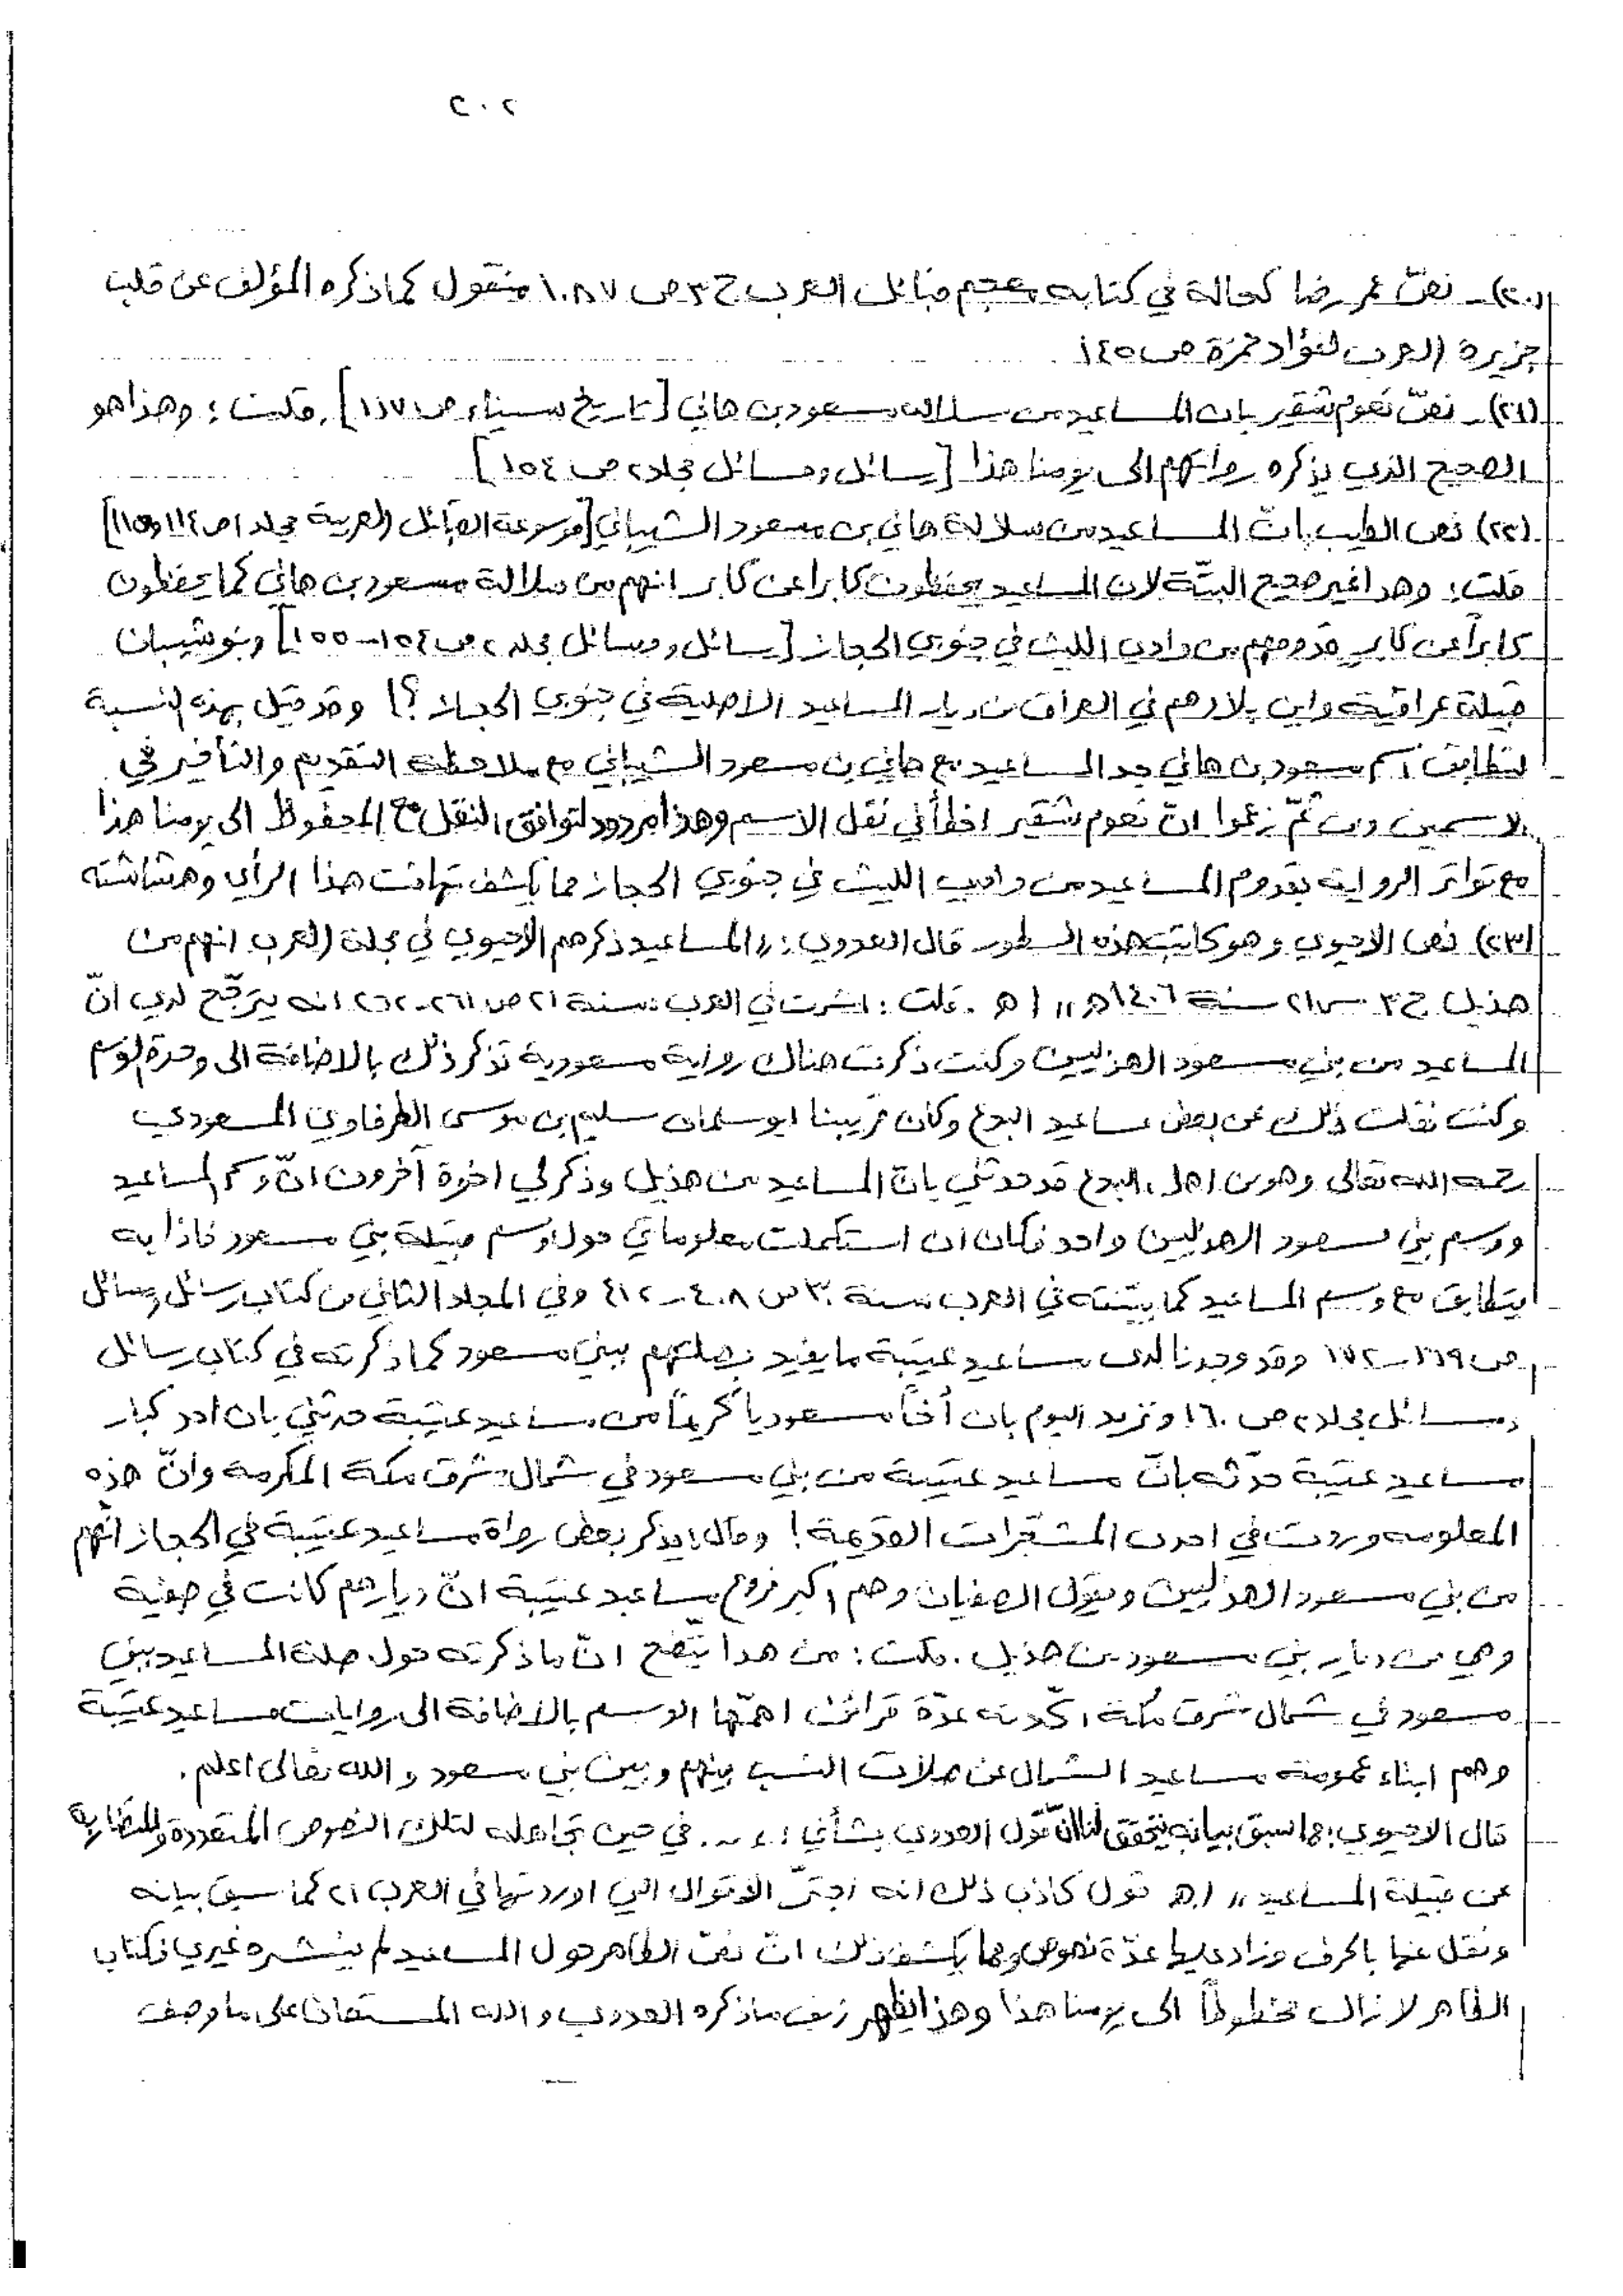 ٢٠٢
(٢٠)ـ نصّ عمر رضا كحالة في كتابه معجم قبائل العرب ج٣ ص ١٠٨٧ منقول كما ذكره المؤلف عن قلب
جزيرة العرب لفؤاد حمزة ص ١٤٥
(٢١)ـ نصّ نعوم شقير بان المساعيد من سلالة مسعود بن هاني [تاريخ سيناء ص ١١٧]. قلت : وهذا هو
الصحيح الذي يذكره رواتهم الى يومنا هذا [رسائل ومسائل مجلد٢ ص ١٥٤]
(٢٢) نص الطيب بانّ المساعيد من سلالة هاني بن مسعود الشيباني [موسوعة القبائل العربية مجلد ١ ص ١١٤ و١١٥]
قلت : وهذا غير صحيح البتّة لان المساعيد يحفظون كابرا عن كابر انهم من سلالة مسعود بن هاني كما يحفظون
كابراً عن كابرٍ قدومهم من وادي الليث في جنوبي الحجاز [رسائل ومسائل مجلد٢ ص ١٥٤ـ١٥٥] وبنو شيبان
قبيلة عراقية واين بلادهم في العراق من ديار المساعيد الاصلية في جنوبي الحجاز ؟! وقد قيل بهذه النسبة
لتطابق اسم مسعود بن هاني جد المساعيد مع هاني بن مسعود الشيباني مع ملاحظة التقديم والتأخير في
الاسمين ومن ثمّ زعموا انّ نعوم شقير اخطأ في نقل الاسم وهذا مردود لتوافق النقل مع المحفوظ الى يومنا هذا
مع تواتر الرواية بقدوم المساعيد من وادي الليث في جنوبي الحجاز مما يكشف تهافت هذا الرأي وهشاشته
(٢٣) نص الاحيوي وهو كاتب هذه السطور قال العدوي : «المساعيد ذكرهم الاحيوي في مجلة العرب انهم من
هذيل ج٣ س٢١ سنة ١٤٠٦هـ» اهـ . قلت : اشرت في العرب سنة ٢١ ص ٢٦١ـ٢٦٢ انه يترجّح لدي انّ
المساعيد من بني مسعود الهذليين وكنت ذكرت هناك رواية مسعودية تذكر ذلك بالاضافة الى وحدة الوسم
وكنت نقلت ذلك عن بعض مساعيد البدع وكان قريبنا ابو سلمان سليم بن موسى الطرفاوي المسعودي
رحمه الله تعالى وهو من اهل البدع قد حدثني بانّ المساعيد من هذيل وذكر لي اخوة آخرون انّ وسم المساعيد
ووسم بني مسعود الهذليين واحد فكان ان استكملت معلوماتي حول وسم قبيلة بني مسعود فاذا به
يتطابق مع وسم المساعيد كما بيّنته في العرب سنة ٣٠ ص ٤٠٨ـ٤١٢ وفي المجلد الثاني من كتاب رسائل ومسائل
ص ١٦٩ـ١٧٢ وقد وجدنا لدى مساعيد عتيبة ما يفيد بصلتهم ببني مسعود كما ذكرته في كتاب رسائل
ومسائل مجلد٢ ص ١٦٠ ونزيد اليوم بان أخاً مسعودياً كريماً من مساعيد عتيبة حدثني بان احد كبار
مساعيد عتيبة حدّثه بانّ مساعيد عتيبة من بني مسعود في شمال شرق مكة المكرمة وانّ هذه
المعلومه وردت في احدى المشجّرات القديمة ! وقال : يذكر بعض رواة مساعيد عتيبة في الحجاز انّهم
من بني مسعود الهذليين ويقول الصفيان وهم اكبر فروع مساعيد عتيبة انّ ديارهم كانت في صفية
وهي من ديار بني مسعود من هذيل . قلت : من هذا يتّضح انّ ما ذكرته حول صلة المساعيد ببني
مسعود في شمال شرق مكة اكّدته عدّة قرائن اهمّها الوسم بالاضافة الى روايات مساعيد عتيبة
وهم ابناء عمومة مساعيد الشمال عن صلات النسب بينهم وبين بني مسعود والله تعالى اعلم .
قال الاحيوي : مما سبق بيانه يتحقق لنا انّ قول العدوي بشأني : « ... في حين تجاهله لتلك النصوص المتعددة والمتضاربة
عن قبيلة المساعيد » اهـ قول كاذب ذلك انه اجترّ الاقوال التي اوردتها في العرب ٢١ كما سبق بيانه
ونقل عنها بالحرف وزاد عليها عدّة نصوص ومما يكشف ذلك انّ نصّ الطاهر حول المساعيد لم ينشره غيري فكتاب
الطاهر لا زال مخطوطاً الى يومنا هذا وهذا يظهر زيف ما ذكره العدوي والله المستعان على ما وصف